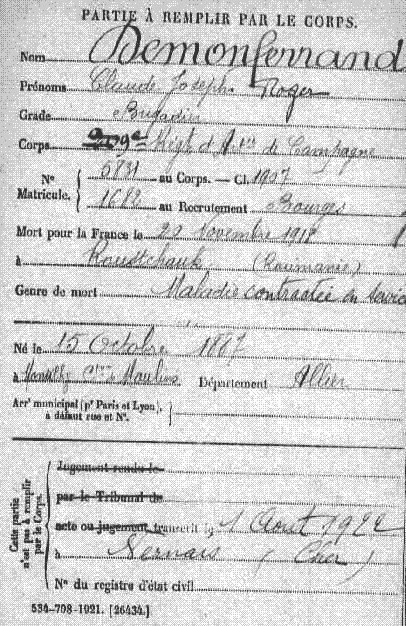 PARTIE À REMPLIR PAR LE CORPS.
Nom Demonferrand
Prénoms Claude Joseph Roger
Grade Brigadier
Corps 209e Régt d'Art. de Campagne
Nº Matricule. 5831 au Corps. — Cl. 1907
1682 au Recrutement Bourges
Mort pour la France le 29 Novembre 1918
à Roustchouk (Roumanie)
Genre de mort Maladie contractée en service
Né le 15 Octobre 1887
à Moulins Département Allier
Arrt municipal (pr Paris et Lyon), à défaut rue et Nº.
Cette partie n'est pas à remplir par le Corps.
Jugement rendu le
par le Tribunal de
acte ou jugement transcrit le 1 Août 1922
à (Cher)
Nº du registre d'état civil
534-708-1921. [26434.]